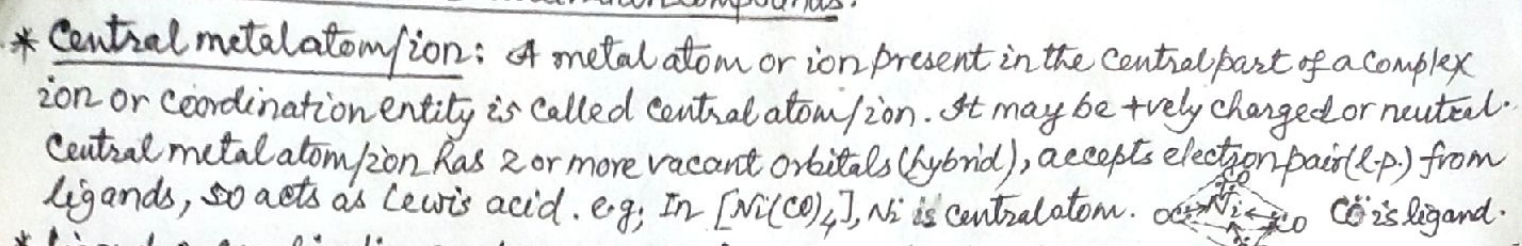 * Central metal atom/ion: A metal atom or ion present in the central part of a complex
ion or coordination entity is called central atom/ion. It may be +vely charged or neutral.
Central metal atom/ion has 2 or more vacant orbitals (hybrid), accepts electron pair (l.p.) from
ligands, so acts as Lewis acid. e.g; In [Ni(CO)4], Ni is central atom. OC Ni CO CO is ligand.